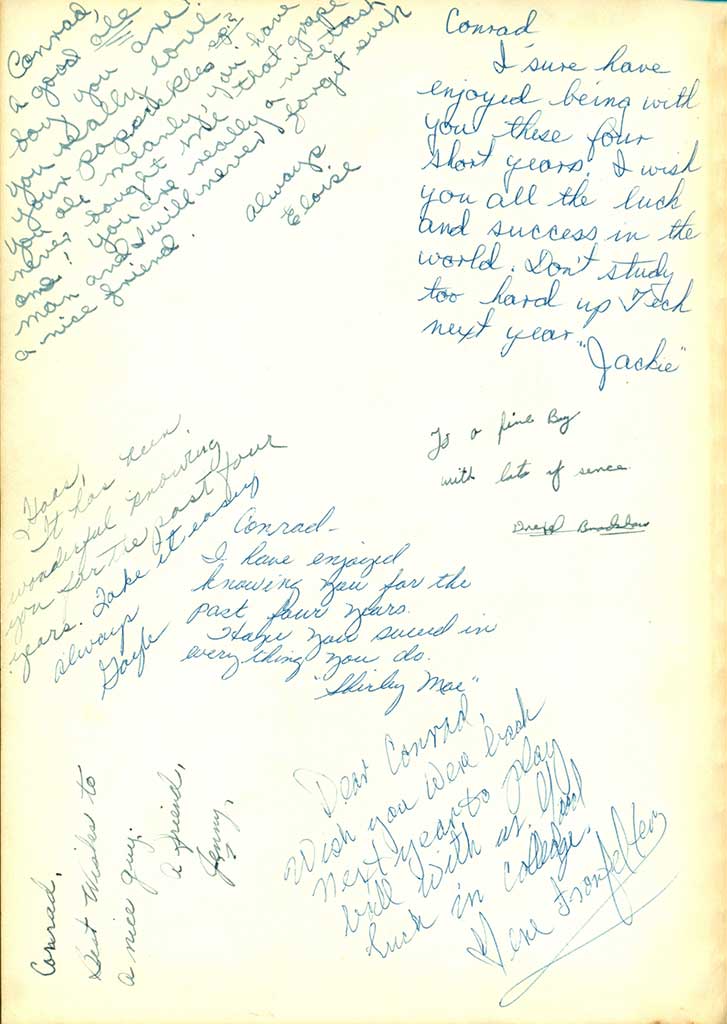 Conrad,
a good ole
boy you are.
you really love
your Papsickles sp.?
you ole meany, you have
never bought me that grape
one! you are really a nice
man and I will never forget such
a nice friend.
Always
Eloise
Conrad
I sure have
enjoyed being with
you these four
short years. I wish
you all the luck
and success in the
world. Don't study
too hard up Tech
next year.
"Jackie"
To a fine Boy
with lots of sence
Bradshaw
Haas,
It has been
wonderful knowing
you for the past four
years. Take it easy
always
Gayle
Conrad-
I have enjoyed
knowing you for the
past four years.
Hope you suceed in
everything you do.
"Shirley Mae"
Conrad,
Best Wishes to
a nice guy.
a friend,
Jenny.
Dear Conrad,
Wish you were back
next year to play
ball with us. Good
Luck in College.
Gene